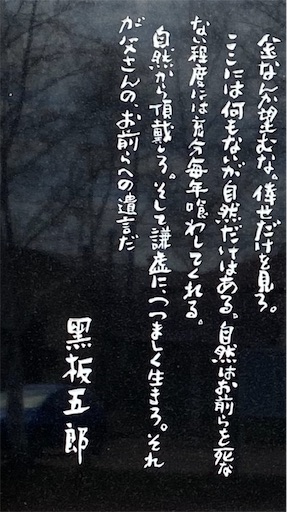 金なんか望むな。倖せだけを見ろ。
ここには何もないが自然だけはある。自然はお前らを死な
ない程度には充分毎年喰わしてくれる。
自然から頂戴しろ。そして謙虚に、つつましく生きろ。それ
が父さんの、お前らへの遺言だ
黒板五郎